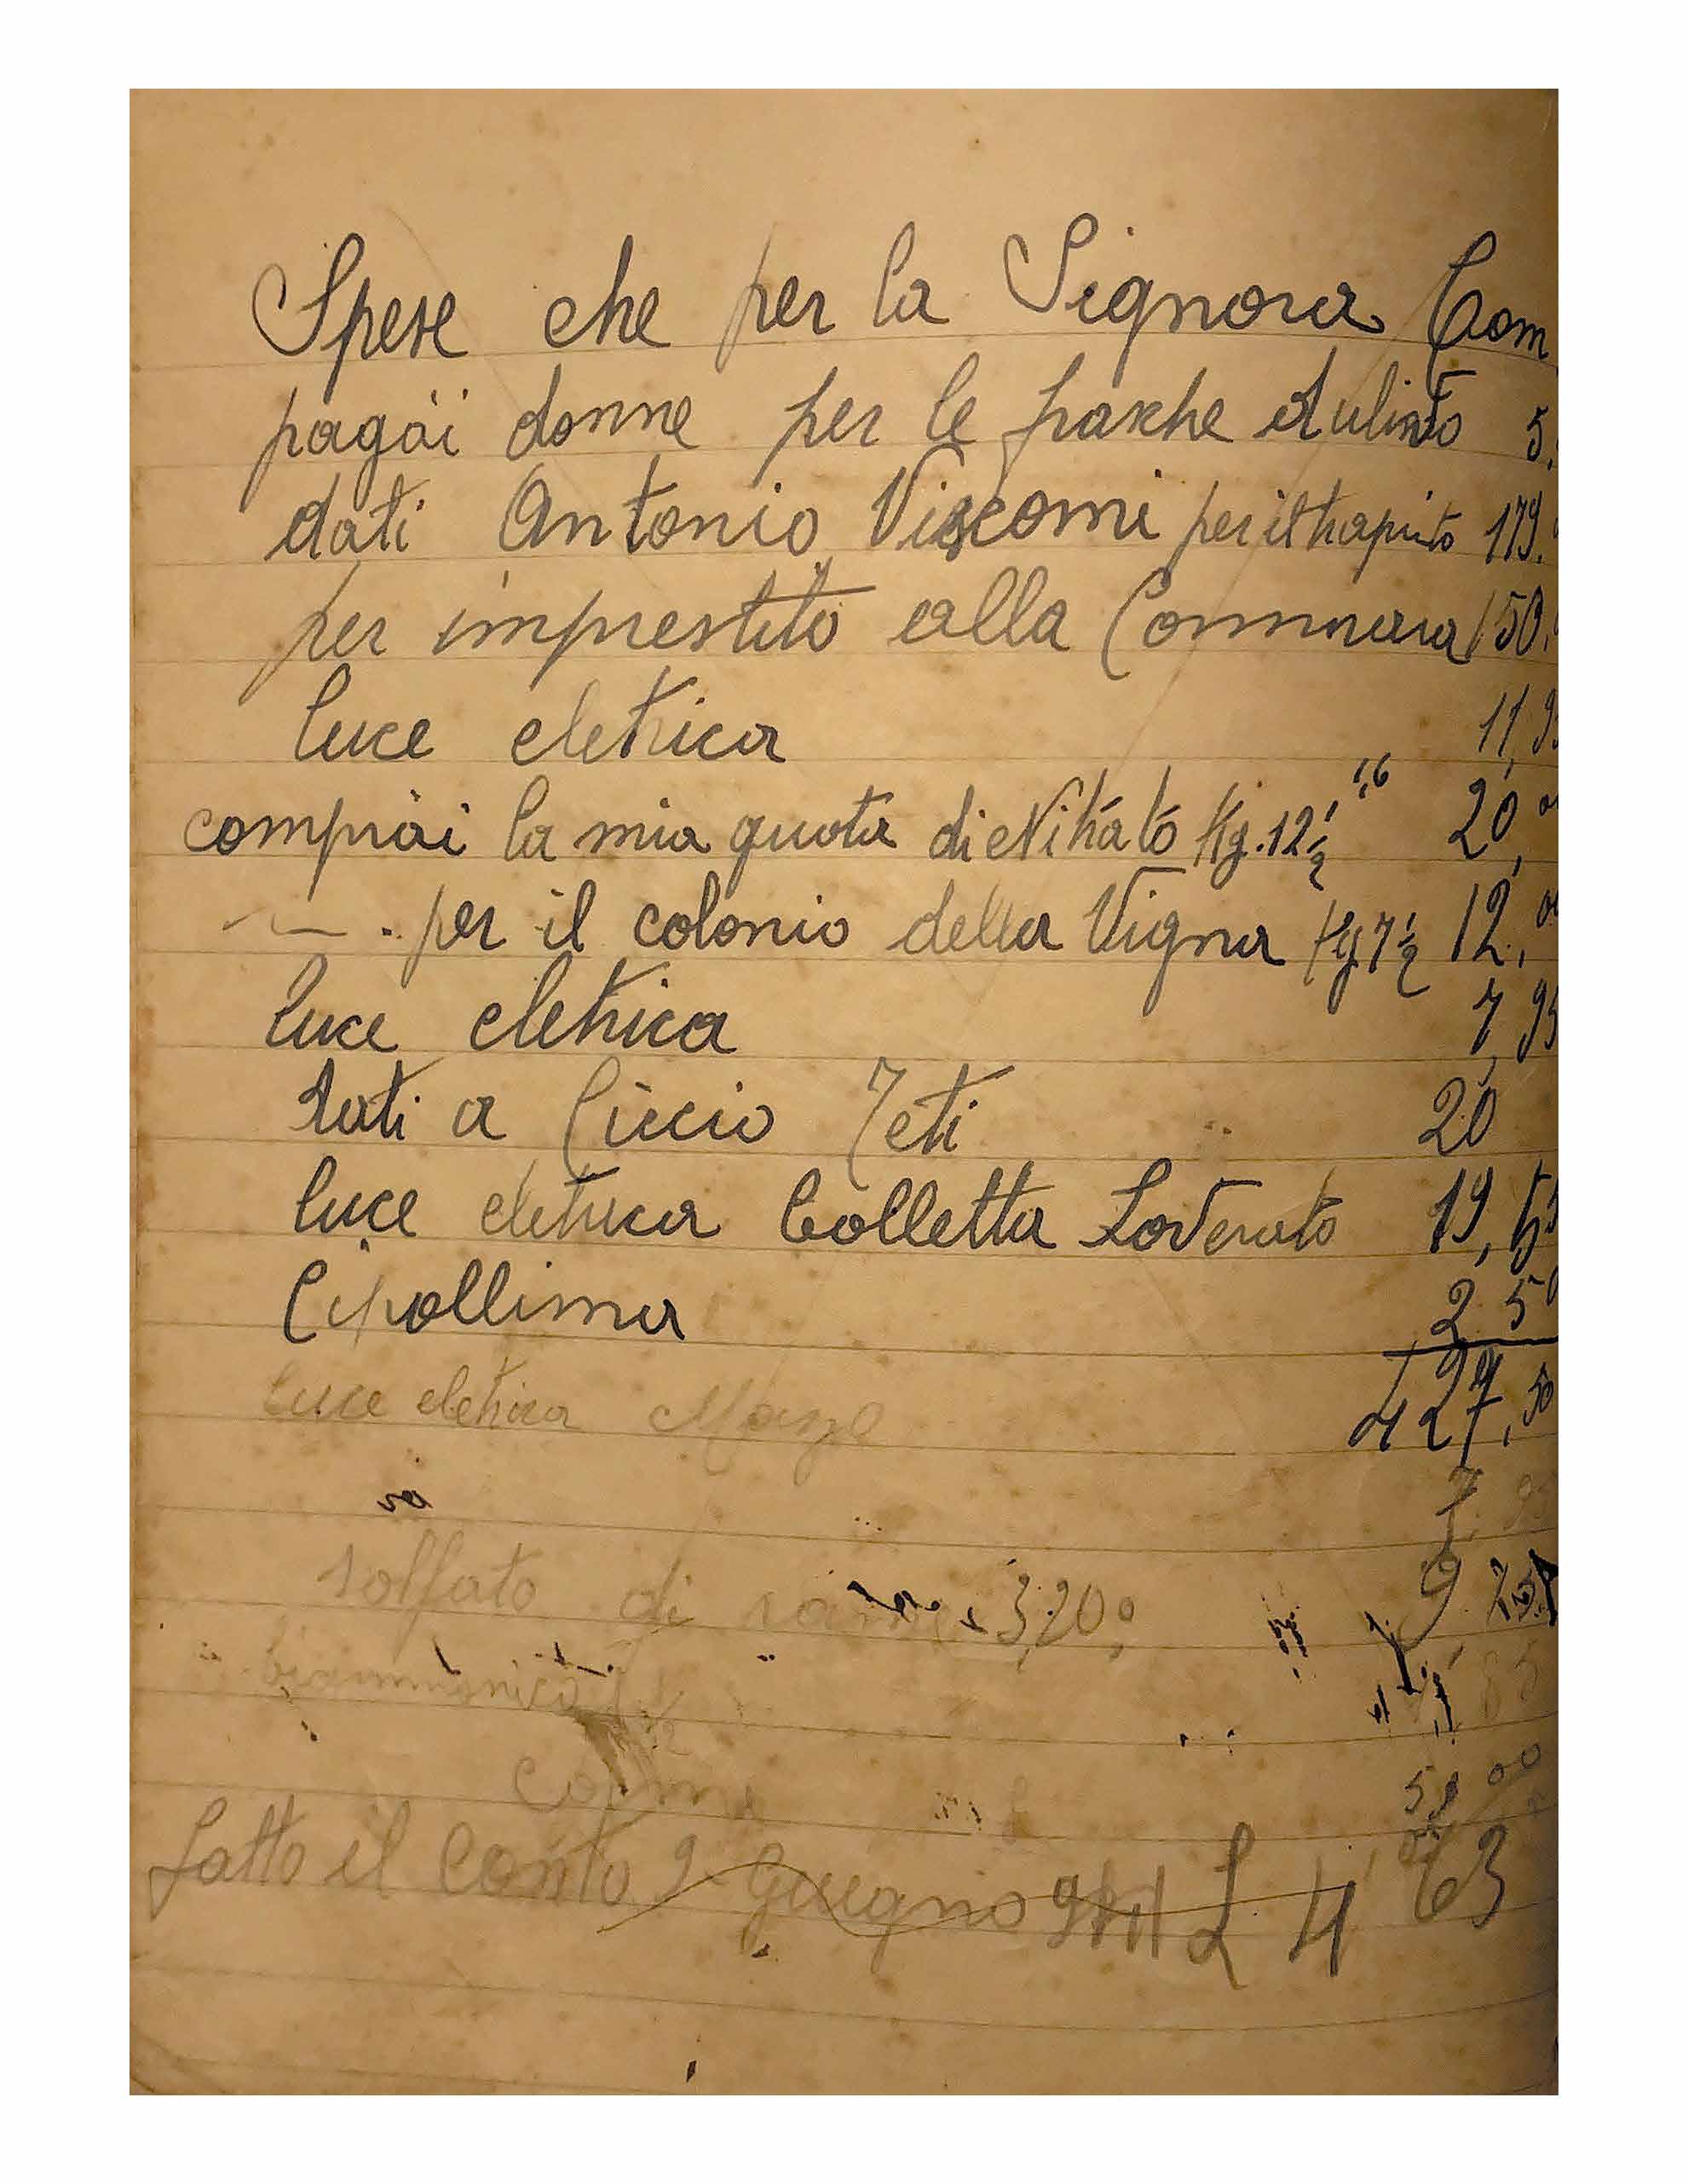 Spese che per la Signora Com
pagài donne per le frasche d'ulivto 5.
dati Antonio Viscomi per il trapinto 179.
per imprestito alla Commara 150.
luce eletrica 11,95
comprài la mia quota di Nitrato Kg. 12 1/2 1,6 20,00
— . per il colonio della Vigna Kg 7 1/2 12,00
luce eletrica 7,95
dati a Ciccio Teti 20
luce eletrica Colletta Loverato 19,65
Cipollina 2 50
luce eletrica Marzo 427,50
7,95
solfato di rame 3,20 9
50 00
Fatto il Conto 9 Giugno L 463